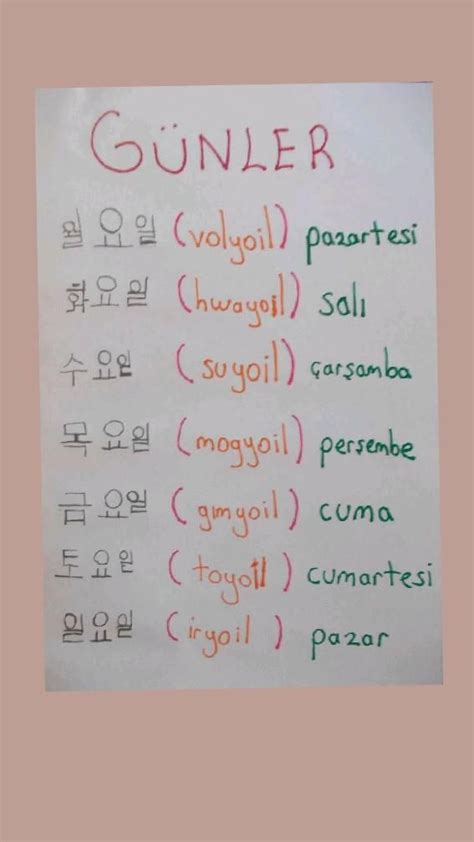 GÜNLER
월요일 (volyoil) pazartesi
화요일 (hwayoil) salı
수요일 (suyoil) çarşamba
목요일 (mogyoil) perşembe
금요일 (gımyoil) cuma
토요일 (toyoıl) cumartesi
일요일 (iryoil) pazar